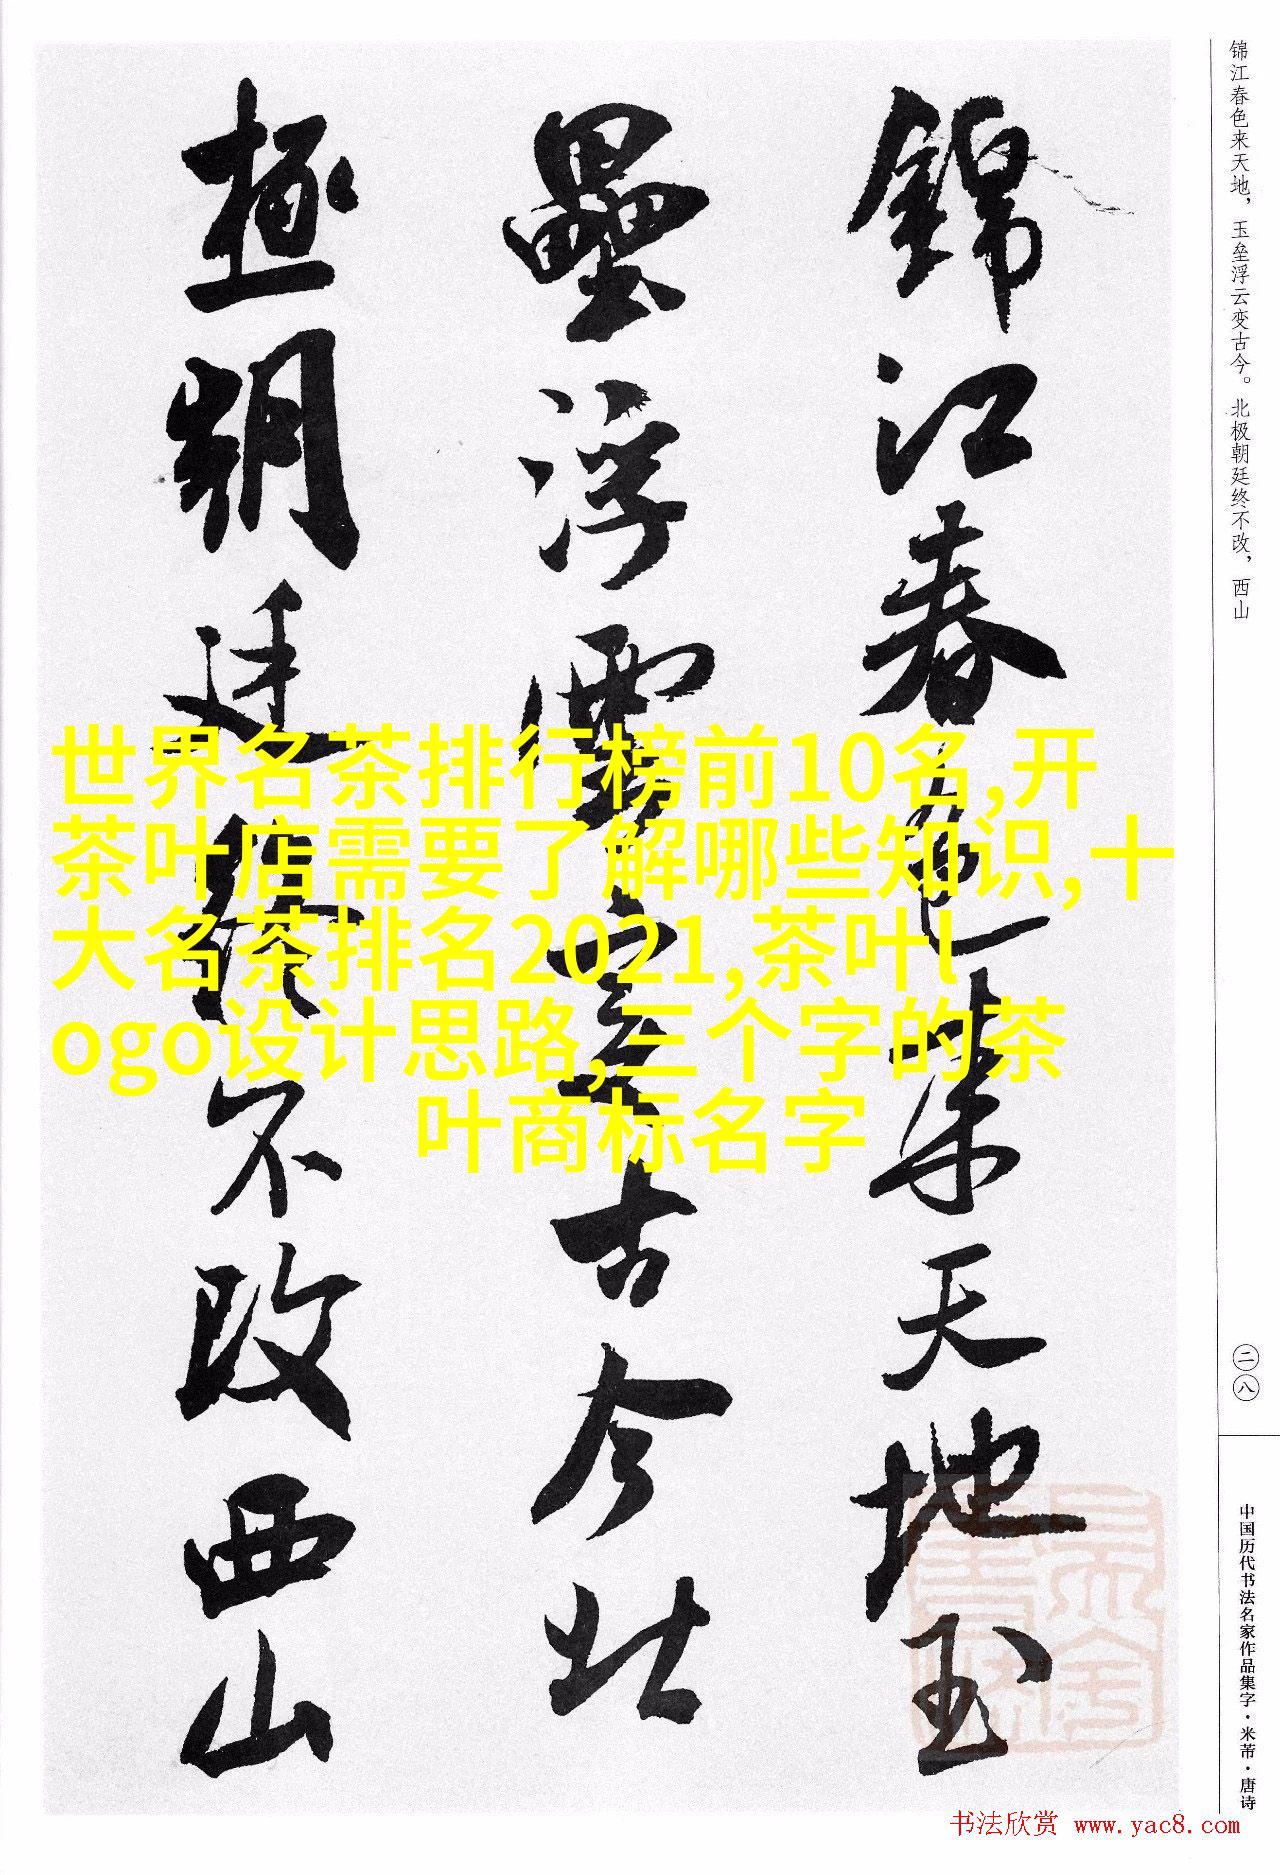 锦江春色来天地，玉垒浮云变古今。北极朝廷终不改，西山
錦江春色来天地玉
壘浮雲变古今北
極朝廷終不改西山
世界名茶排行榜前10名,开
茶叶店需要了解哪些知识,十
大名茶排名2021,茶叶l
ogo设计思路,三个字的茶
叶商标名字
二八
中国历代书法名家作品集字·米芾·唐诗
书法欣赏 www.yac8.com